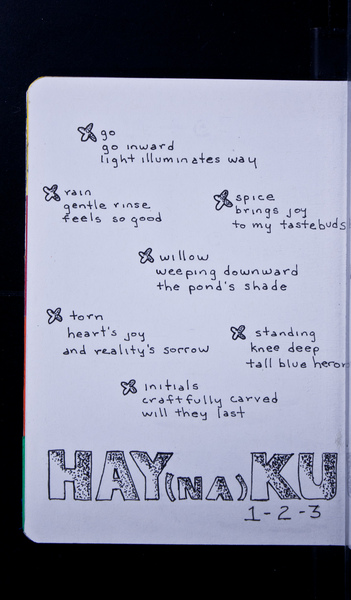 go
go inward
light illuminates way
rain
gentle rinse
feels so good
spice
brings joy
to my tastebuds
willow
weeping downward
the pond's shade
torn
heart's joy
and reality's sorrow
standing
knee deep
tall blue heron
initials
craftfully carved
will they last
HAY(NA)KU
1-2-3